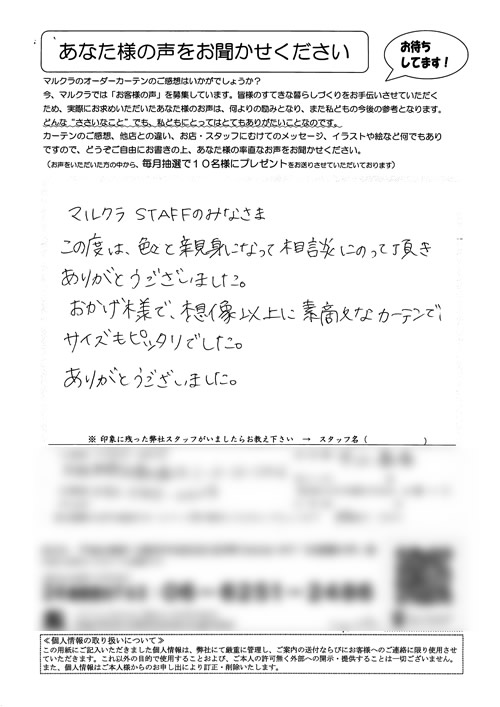 あなた様の声をお聞かせください
お待ち
してます！
マルクラのオーダーカーテンのご感想はいかがでしょうか？
今、マルクラでは「お客様の声」を募集しています。皆様のすてきな暮らしづくりをお手伝いさせていただく
ため、実際にお求めいただいたあなた様のお声は、何よりの励みとなり、また私どもの今後の参考となります。
どんな“ささいなこと”でも、私どもにとってはとてもありがたいことなのです。
カーテンのご感想、他店との違い、お店・スタッフにむけてのメッセージ、イラストや絵など何でもあり
ですので、どうぞご自由にお書きの上、あなた様の率直なお声をお聞かせください。
（お声をいただいた方の中から、毎月抽選で10名様にプレゼントをお送りさせていただいております）
マルクラ STAFFのみなさま
この度は、色々と親身になって相談にのって頂き
ありがとうございました。
おかげ様で、想像以上に素敵なカーテンで
サイズもピッタリでした。
ありがとうございました。
※ 印象に残った弊社スタッフがいましたらお教え下さい → スタッフ名（ ）
≪個人情報の取り扱いについて≫
この用紙にご記入いただきました個人情報は、弊社にて厳重に管理し、ご案内の送付ならびにお客様へのご連絡に限り使用させ
ていただきます。これ以外の目的で使用することおよび、ご本人の許可無く外部への開示・提供することは一切ございません。
また、個人情報はご本人様からのお申し出により訂正・削除いたします。